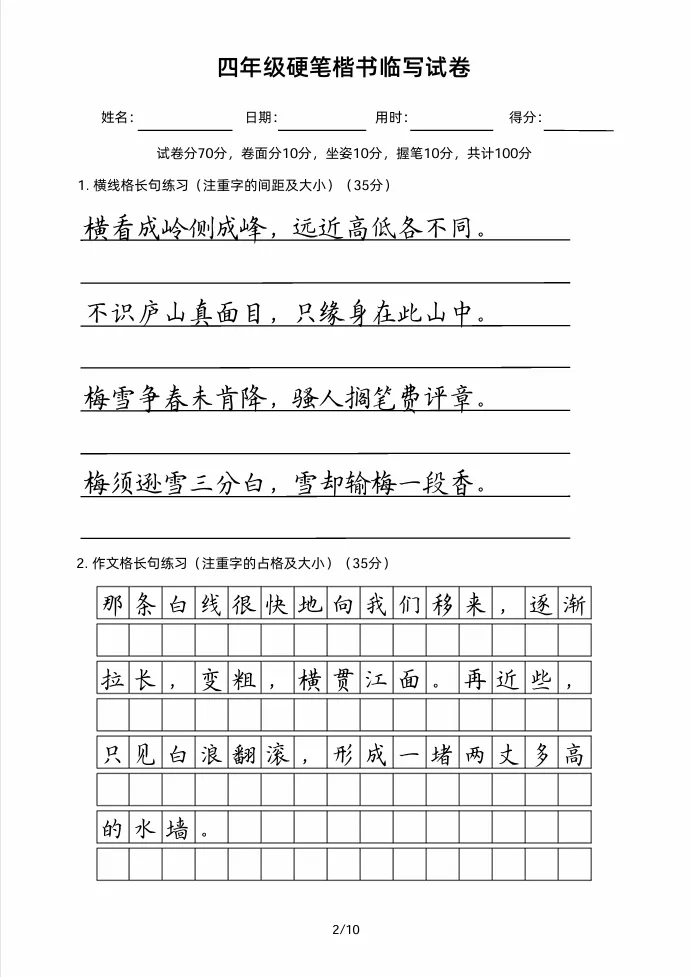 四年级硬笔楷书临写试卷
姓名：　日期：　用时：　得分：
试卷分70分，卷面分10分，坐姿10分，握笔10分，共计100分
1. 横线格长句练习（注重字的间距及大小）（35分）
横看成岭侧成峰，远近高低各不同。
不识庐山真面目，只缘身在此山中。
梅雪争春未肯降，骚人搁笔费评章。
梅须逊雪三分白，雪却输梅一段香。
2. 作文格长句练习（注重字的占格及大小）（35分）
那条白线很快地向我们移来，逐渐
拉长，变粗，横贯江面。再近些，
只见白浪翻滚，形成一堵两丈多高
的水墙。
2/10